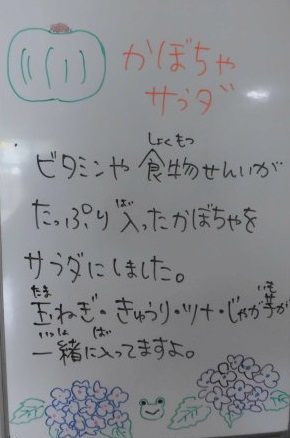 かぼちゃ
サラダ
しょくもつ
ビタミンや食物せんいが
たっぷり入ったかぼちゃを
サラダにしました。
たま いも
玉ねぎ・きゅうり・ツナ・じゃが芋が
いっしょ
一緒に入ってますよ。